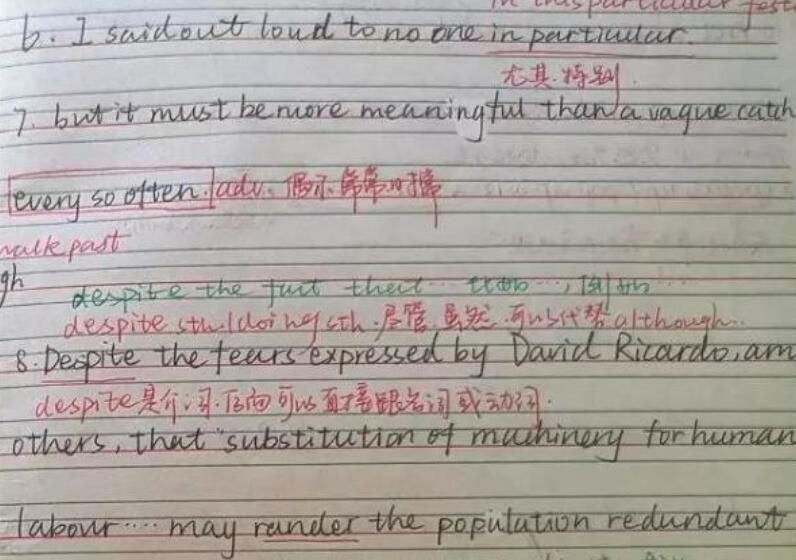 in this particular
6. I said out loud to no one in particular.
尤其.特别.
7. but it must be more meaningful than a vague catch
every so often. adv. 偶尔.常常
walk past
gh
despite the fact that
despite sth/doing sth.尽管.虽然.可以代替although..
8. Despite the fears expressed by David Ricardo, am
despite是介词.后面可以直接跟名词或动词.
others, that "substitution of machinery for human
labour.... may rander the population redundant